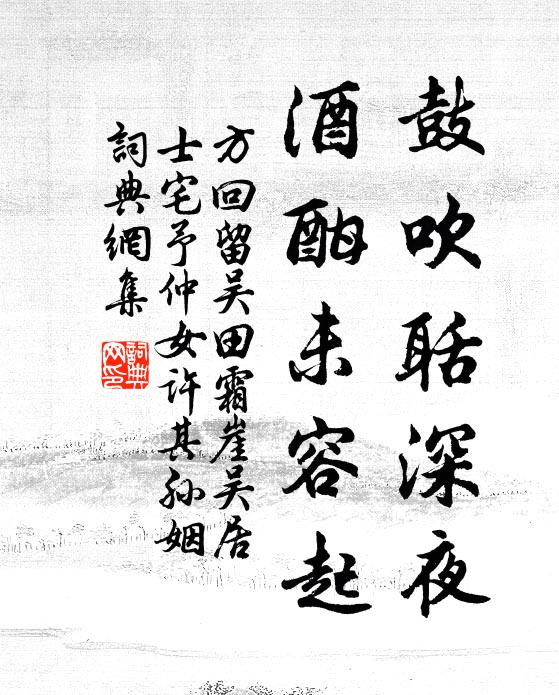 鼓吹聒深夜
酒酣未容起
方回留吴田霜崖吴居
士宅予仲女许其孙姻
詞典網集
詞典
网印